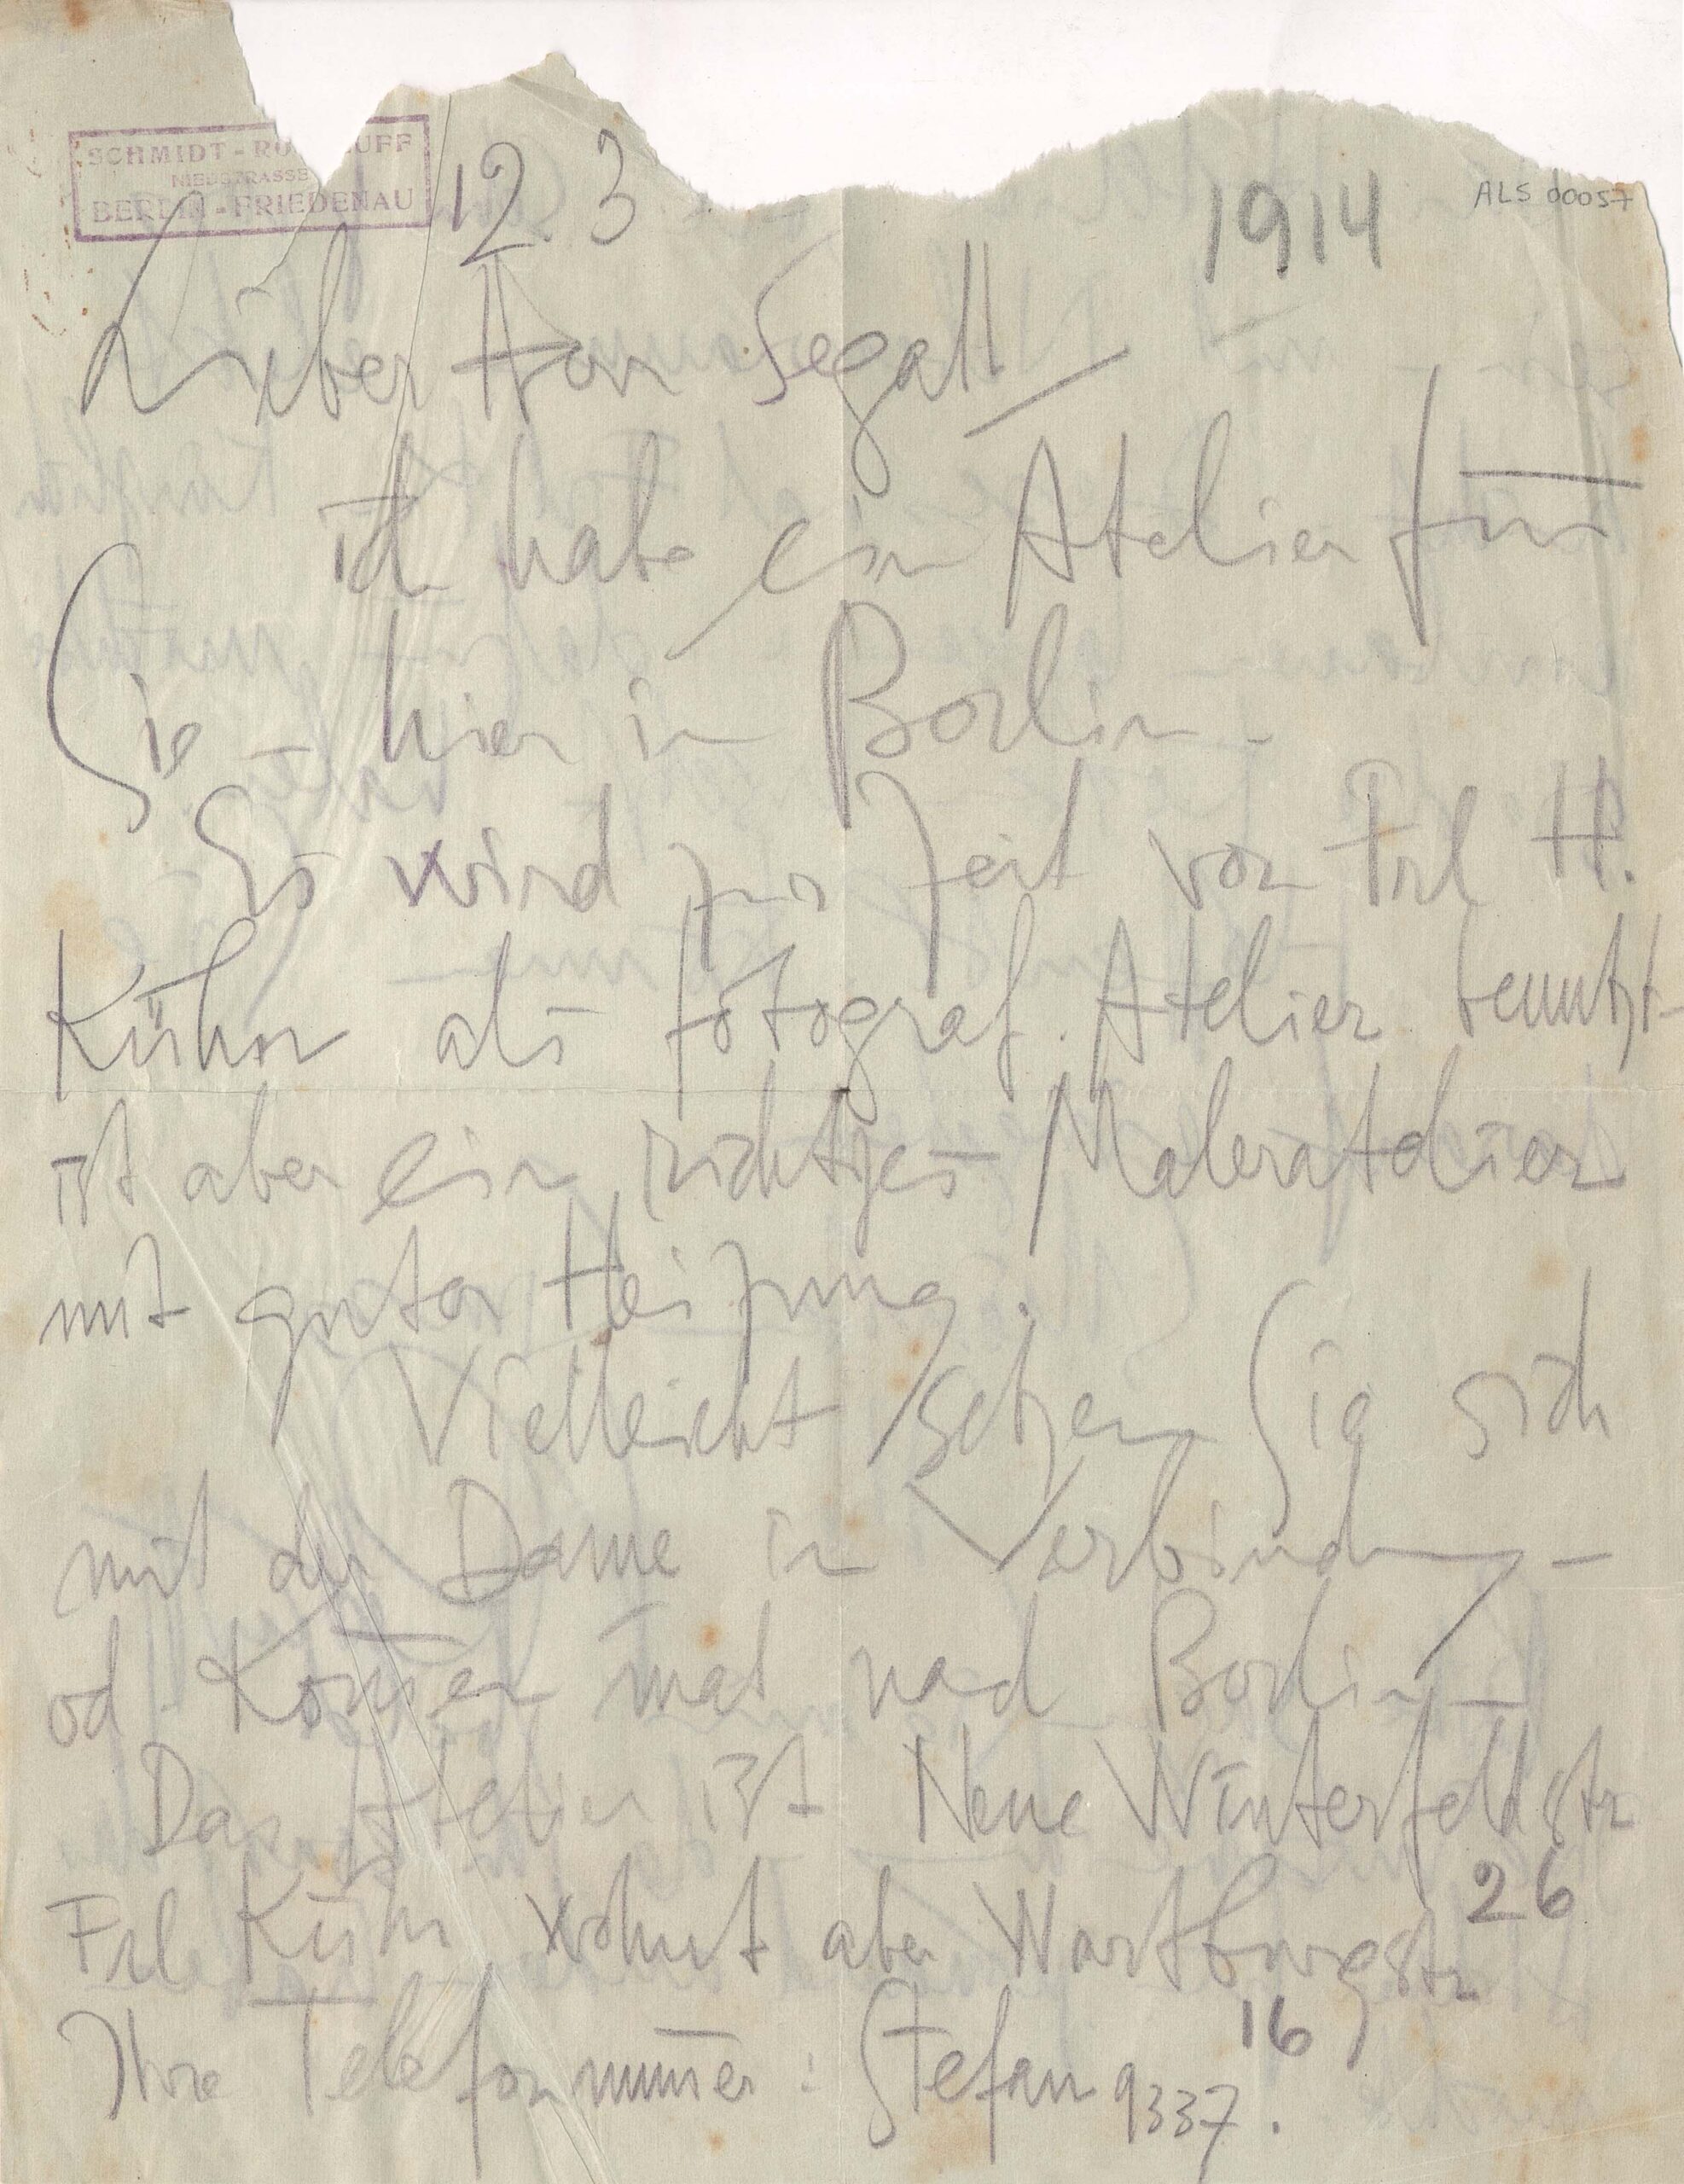 SCHMIDT-RO UFF
NIEDSTRASSE
BERLIN-FRIEDENAU
12. 3 1914
ALS 00057
Lieber Herr Segall
ich habe ein Atelier für
Sie – hier in Berlin –
Es wird zur Zeit von Frl H.
Kühn als fotograf. Atelier benutzt –
ist aber ein richtiges Maleratelier
mit guter Heizung.
Vielleicht setzen Sie sich
mit der Dame in Verbindung –
od Kom̄en mal nach Berlin –
Das Atelier ist Neue Winterfeldstr
26
Frl Kühn wohnt aber Wartburgstr
16
Ihre Telefonnum̄er : Stefan 9337.